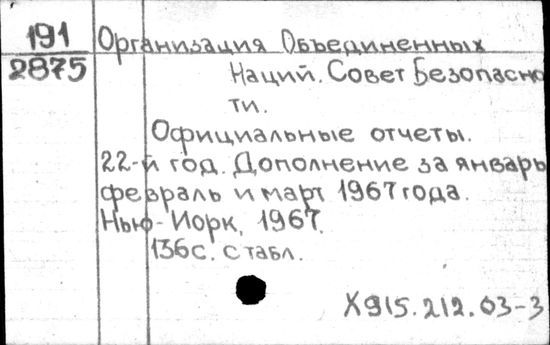 191
2875
Организация Объединенных
Наций. Совет Безопасно
ти.
Официальные отчеты.
22-й год. Дополнение за январь
февраль и март 1967 года.
Нью-Иорк, 1967.
136с. с табл.
X915.212.03-3